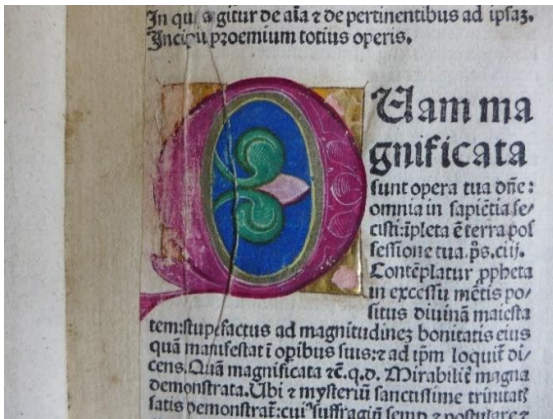 In qu agitur de aīa ⁊ de pertinentibus ad ipsaꝫ.
Incipit proemium totius operis.
QUam ma
gnificata
sunt opera tua dn̄e:
omnia in sapiētia fe/
cisti: īpleta ē terra pos
sessione tua. ps. ciij.
Contēplatur ꝓpheta
in excessu mētis po/
situs diuinā maiesta
tem: stupefactus ad magnitudineꝫ bonitatis eius
quā manifestat ī oꝑibus suis: ⁊ ad ip̄m loquit̄ di/
cens. Quā magnificata ⁊c̄. q.d. Mirabilit̄ magna
demonstrata. Ubi ⁊ mysteriū sanctissime trinitat̄
satis demonstrat̄: cui' suffragiū semꝑ ⁊ postulare ⁊